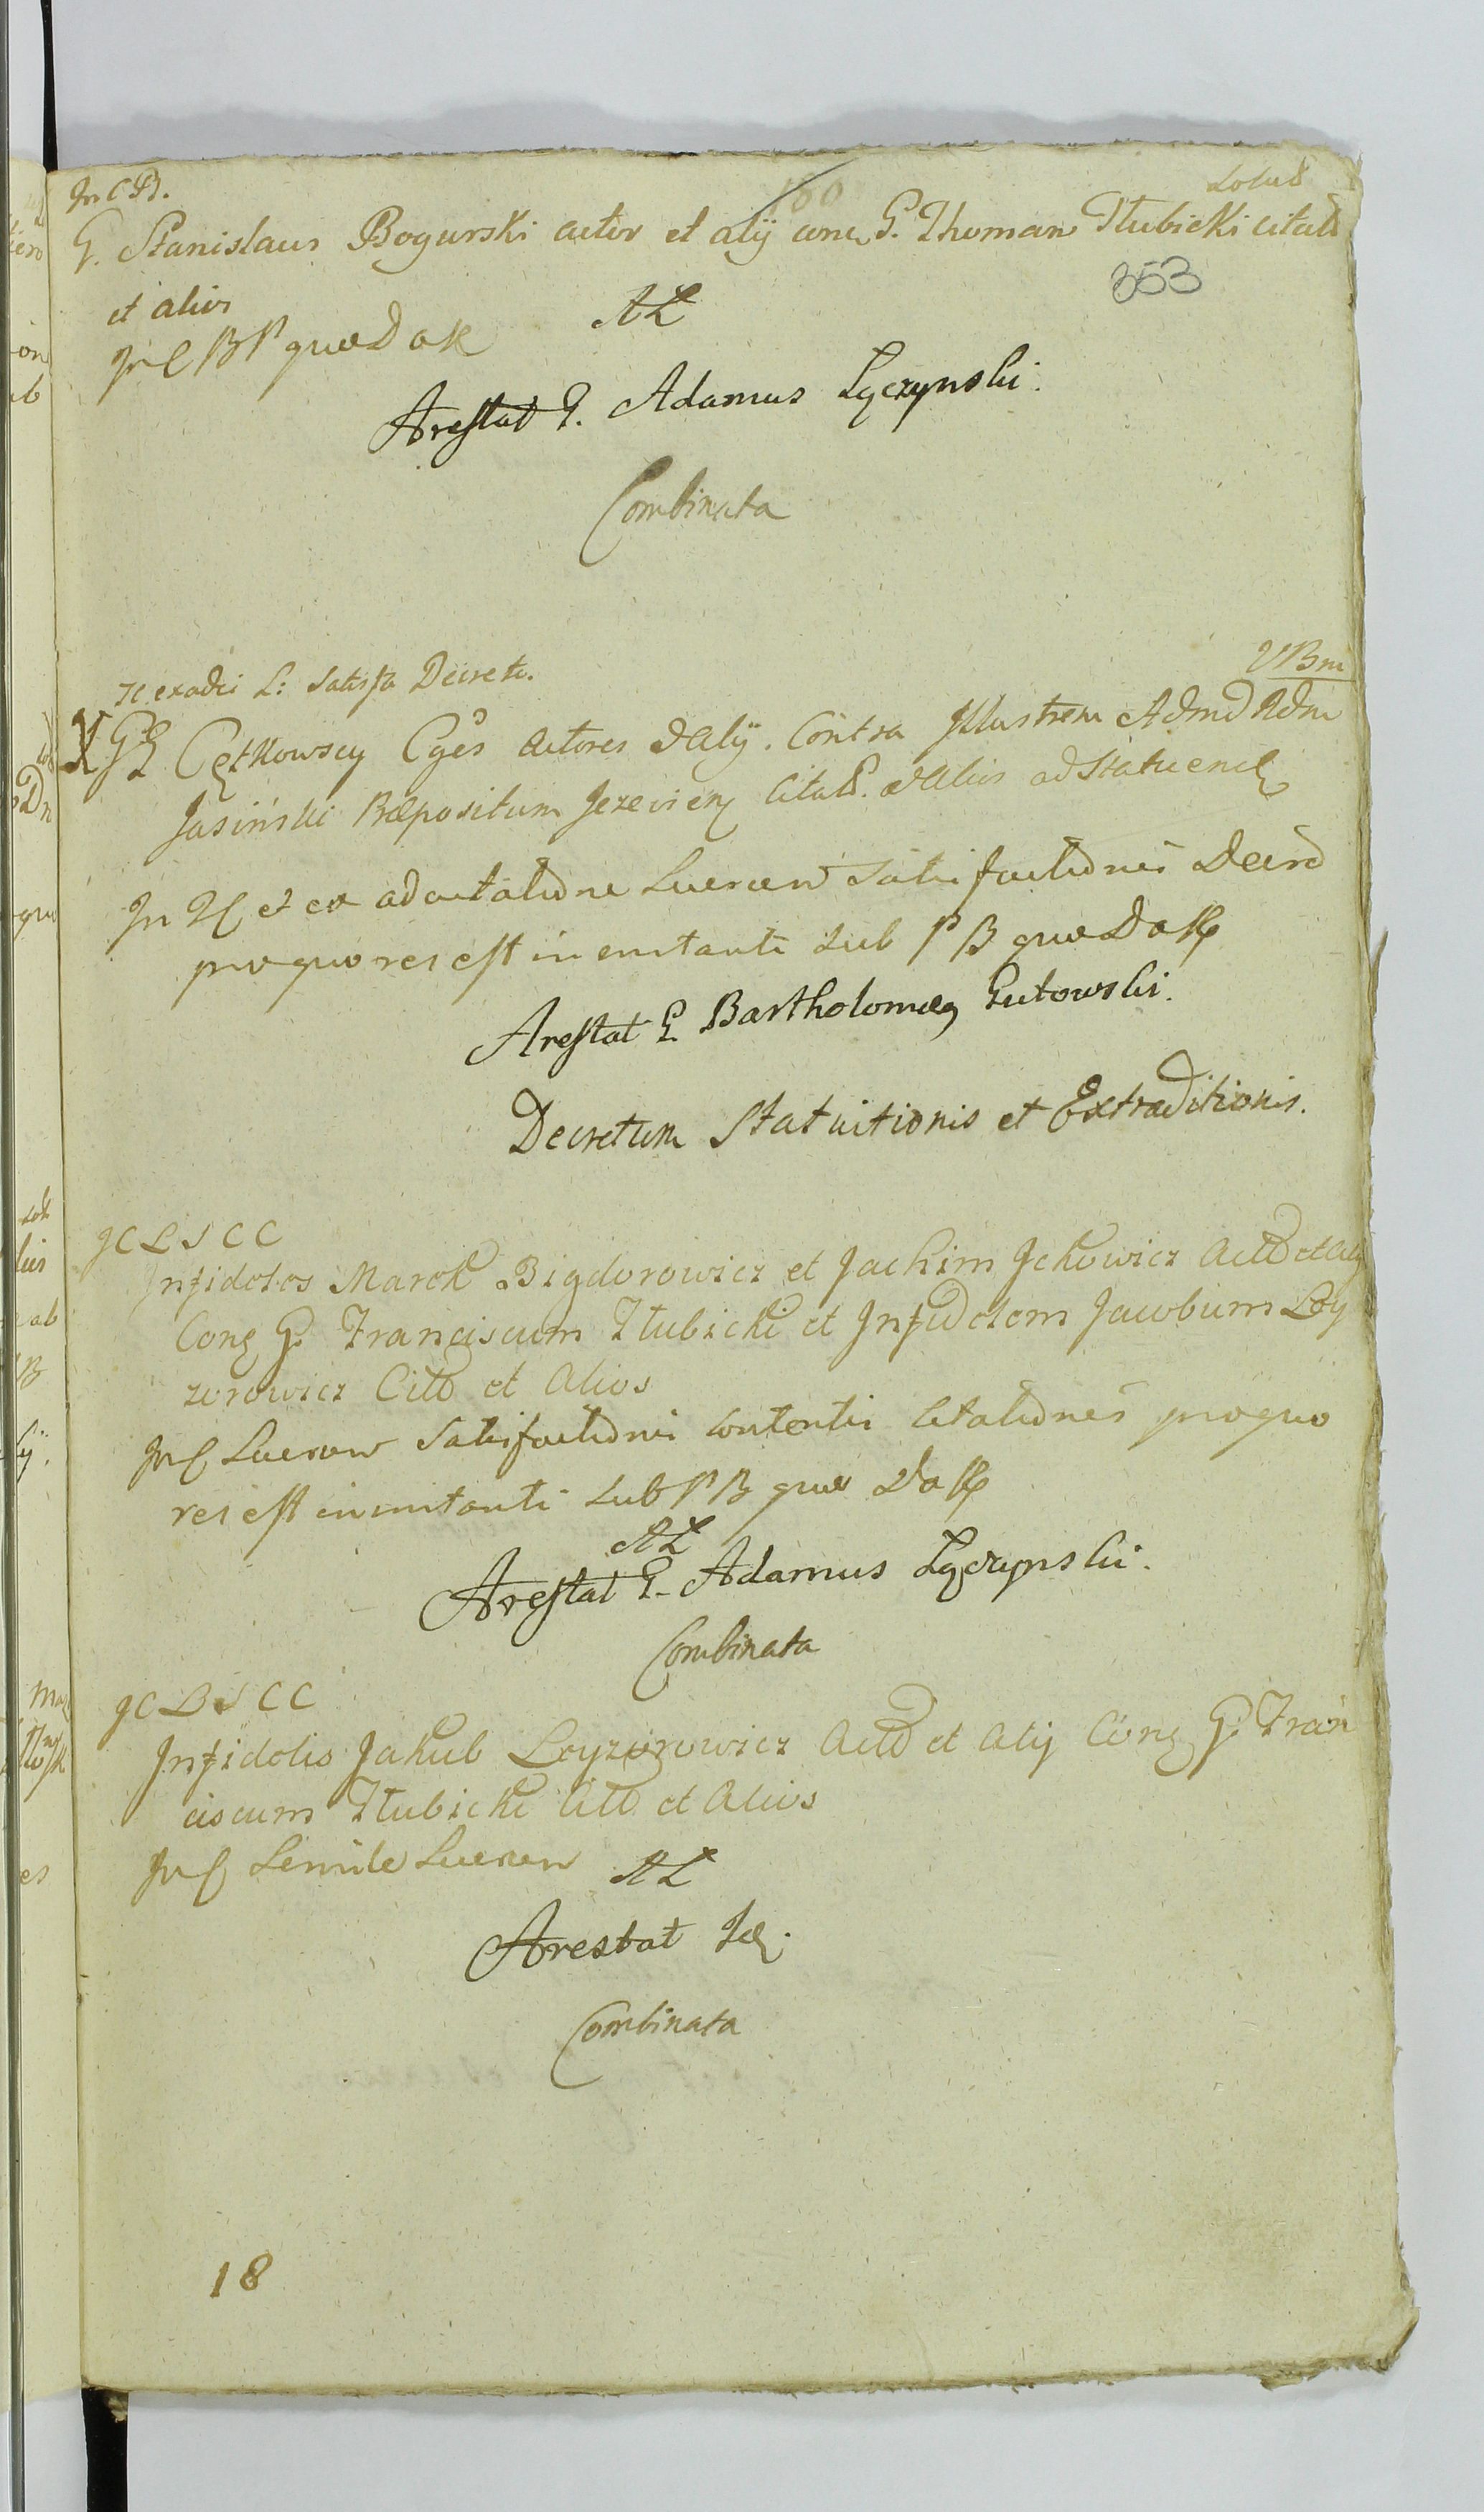 In C P.
160
Lotus
G. Stanislaus Bogurski actor et alij conc G. Thoman Ilubicki citat
353
et alios
In C B P quae D aK
AL
Arestat G. Adamus Lączynski.
Combinata
H. exadci L: Satisfa Decreto.
VBm
GG Cętkowscy Cges actores et alij. Contra Illustrem Admd Rdm
Jasinski Praepositum Jezevien citat. et alios ad statuend
In H et ex adcitatione Lucrum Satisfactionis Decro
pro quo res est in instanti sub P B quae D aK
Arestat G. Bartholomaeg Gutowski.
Decretum Statuitionis et Extraditionis.
J C L S C C
Infideles Marek Bigdorowicz et Jachim Jckowicz Act et alij
Conc G. Franciscum Ilubicki et Infidelem Jacobum Ley
zerowicz Citt et Alios
In C Lucrum Satisfactionis contentis Citationis pro quo
res est in instanti sub P B quae D aK
AL
Arestat G. Adamus Lączynski.
Combinata
J C B S C C
Infidelis Jakub Leyzorowicz Act et Alij Conc G. Fran
ciscum Ilubicki Citt et Alios
In C Simile Lucrum
AL
Arestat Id.
Combinata
18